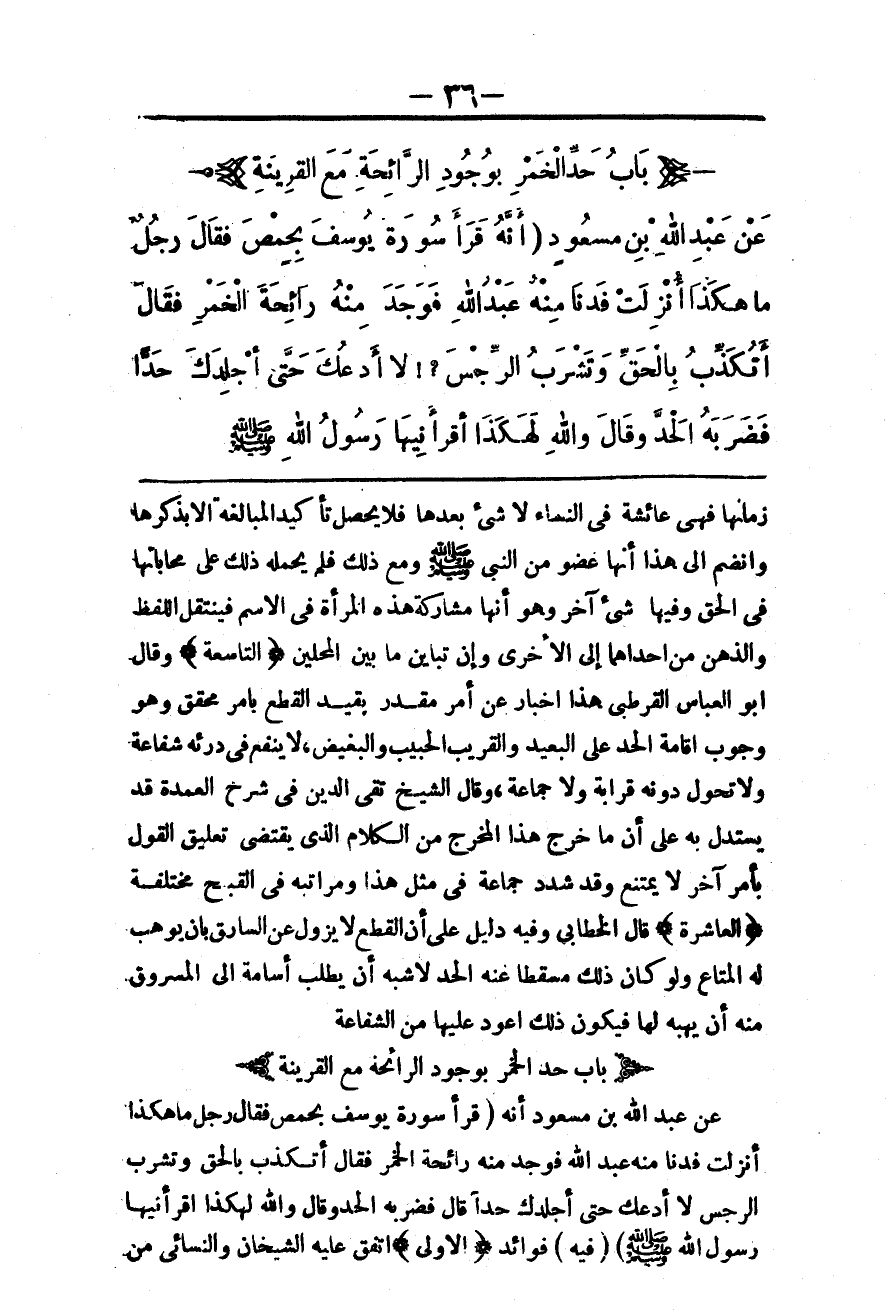 — ٣٦ —
بَابُ حَدِّ الْخَمْرِ بِوُجُودِ الرَّائِحَةِ مَعَ القَرِينَةِ
عَنْ عَبْدِ اللهِ بْنِ مسعُودٍ (أَنَّهُ قَرَأَ سُورَةَ يُوسفَ بِحِمْصَ فَقَالَ رجلٌ
ما هكَذَا أُنْزِلَتْ فَدنَا مِنْهُ عَبْدُ اللهِ فَوَجَدَ مِنْهُ رَائِحَةَ الْخَمْرِ فقَالَ
أَتُكَذِّبُ بِالْحَقِّ وَتَشْرَبُ الرِّجْسَ؟! لا أَدعُكَ حَتَّى أجْلِدَكَ حَدًّا
فَضَرَبَهُ الحَدَّ وقَالَ واللهِ لَهَكَذَا أقرأَنِيهَا رَسُولُ اللهِ ﷺ
زمانها فهى عائشة فى النساء لا شىء بعدها فلا يحصل تأكيد المبالغة الا بذكرها
وانضم الى هذا أنها عضو من النبى ﷺ ومع ذلك فلم يحمله ذلك على محاباتها
فى الحق وفيها شىء آخر وهو أنها مشاركة هذه المرأة فى الاسم فينتقل اللفظ
والذهن من احداهما إلى الأخرى وإن تباين ما بين المحلين ﴿ التاسعة ﴾ وقال
ابو العباس القرطبى هذا اخبار عن أمر مقدر بقيد القطع بامر محقق وهو
وجوب اقامة الحد على البعيد والقريب الحبيب والبغيض، لا ينفع فى درئه شفاعة
ولا تحول دونه قرابة ولا جماعة، وقال الشيخ تقى الدين فى شرخ العمدة قد
يستدل به على أن ما خرج هذا المخرج من الكلام الذى يقتضى تعليق القول
بأمر آخر لا يمتنع وقد شدد جماعة فى مثل هذا ومراتبه فى القبح مختلفة
﴿ العاشرة ﴾ قال الخطابى وفيه دليل على أن القطع لا يزول عن السارق بان يوهب
له المتاع ولو كان ذلك مسقطا عنه الحد لاشبه أن يطلب أسامة الى المسروق
منه أن يهبه لها فيكون ذلك اعود عليها من الشفاعة
باب حد الخمر بوجود الرائحة مع القرينة
عن عبد الله بن مسعود أنه (قرأ سورة يوسف بحمص فقال رجل ما هكذا
أنزلت فدنا منه عبد الله فوجد منه رائحة الخمر فقال أتكذب بالحق وتشرب
الرجس لا أدعك حتى أجلدك حداً قال فضربه الحد وقال والله لهكذا اقرأنيها
رسول الله ﷺ) (فيه) فوائد ﴿ الاولى ﴾ اتفق عليه الشيخان والنسائى من